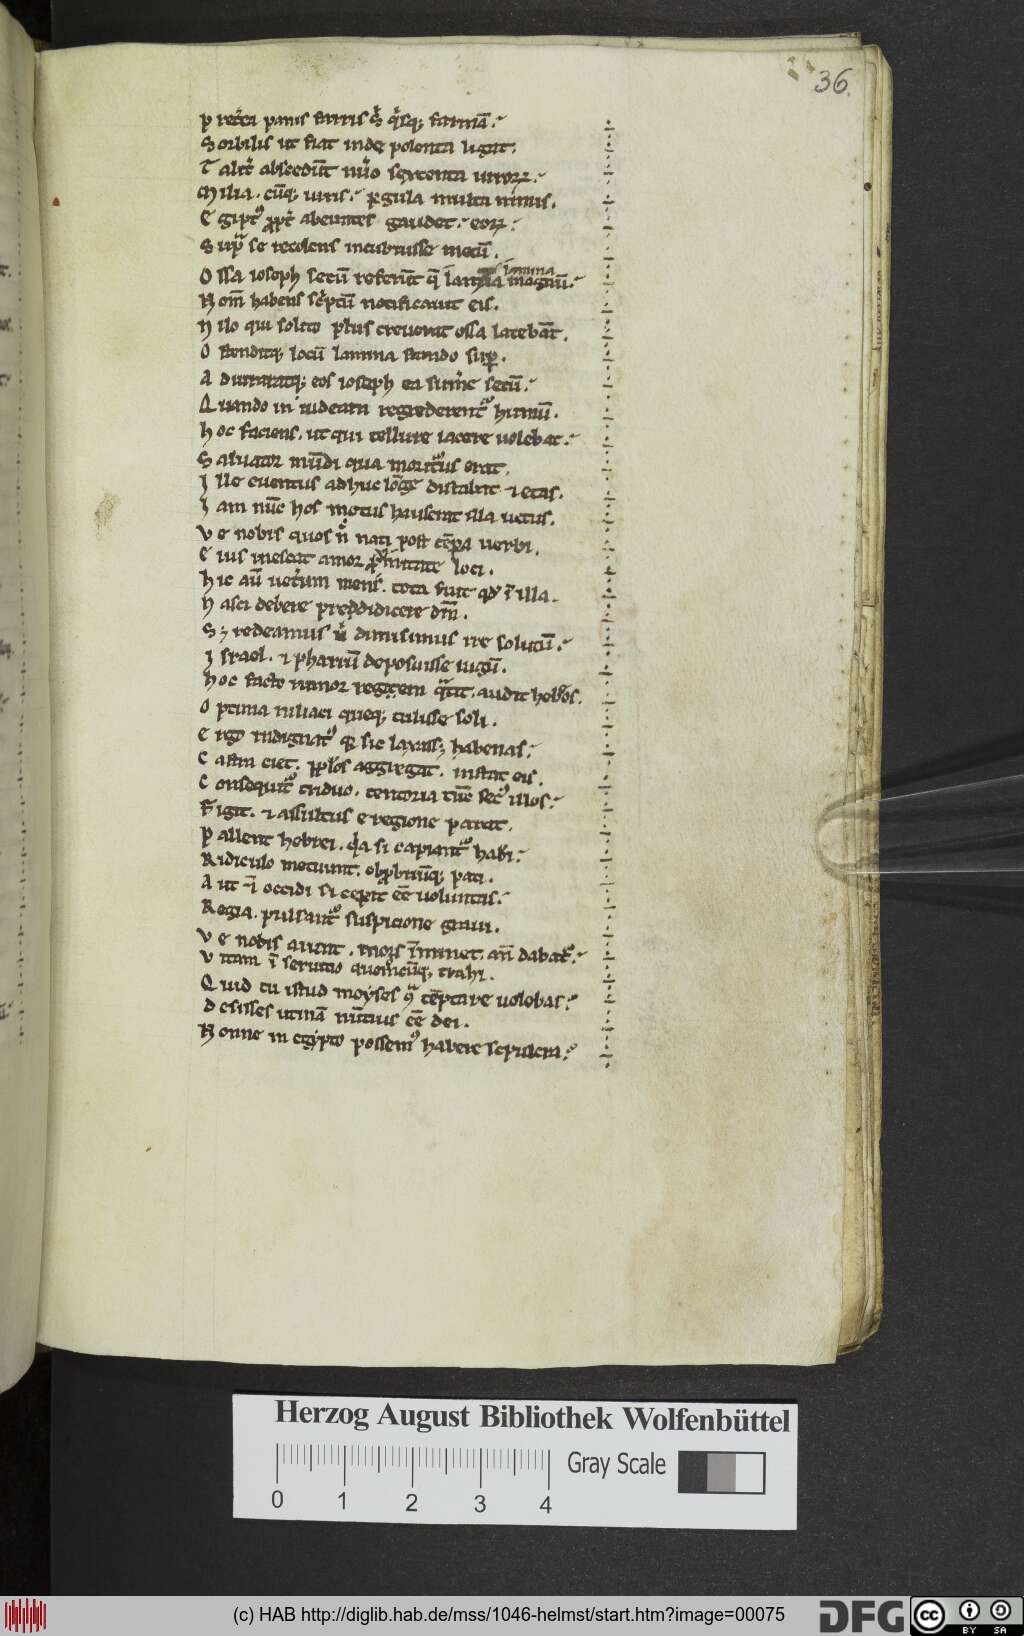 36.
P ret'ea panis farris s; q'sq; farinā.
S orbilis ut fiat inde polenta ligat.
T alit' absceduт nūo sexcenta uiroꝝ.
M ilia. cūq; uiris. pgula multa nimis.
E gipt' ppt' abeuntes gaudet. eoꝝ.
S up se recolens incubuisse metū.
O ssa ioseph secū referūt q̄ lamina magnū.
lamina
N om̄ habens sc'ptū notificauit eis.
N ilo qui solito plus creuerat ossa latebāt.
O stenditq; locū lamina stando sup.
A diuraratq; eos ioseph ea sum'e secū.
Q uando in iudeam regrederent' humū.
h oc faciens. ut qui tellure iacere uolebat.
S aluator mūdi qua morit'us erat.
I lle euentus adhuc lōge distabat ⁊ etas.
I am nūc hos motus hauserat illa uetus.
V e nobis quos n̄ nati post tēpa uerbi.
E ius inescat amor pximitate loci.
h ic aū uet'um mens. tota fuit qd' ī illa.
N asci debere predidicere dn̄m.
S ꝫ redeamus u' dimisimus ire solutū.
I srael. ⁊ phariū deposuisse iugū.
h oc facto rumor regem q̄tit. audit hebr'os.
O ptima niliaci queq; tulisse soli.
E rgo indignat' qd sic laxassꝫ habenas.
C astra ciet. pp'los aggregat. instat eis.
C onsequit' triduo. tentoria tūc sec' illos.
F igit. ⁊ assultus e regione parat.
P allent hebrei. q'a si capiant' hab'i.
R idiculo metuunt. obpbriūq; pati.
A ut ī occidi si cepit eē uoluntas.
R egia. pulsant' suspicione graui.
V e nobis aiunt. mors īminet. an̄ dabat'.
V itam ī seruitio quomcūq; trahi.
Q uid tu istud moyses q̄ tēptare uolebas?
D esisses utinā nūtius eē dei.
N onne in egypto possem' habere sepulcra?
Herzog August Bibliothek Wolfenbüttel
0 1 2 3 4
Gray Scale
(c) HAB http://diglib.hab.de/mss/1046-helmst/start.htm?image=00075
DFG
cc
BY SA